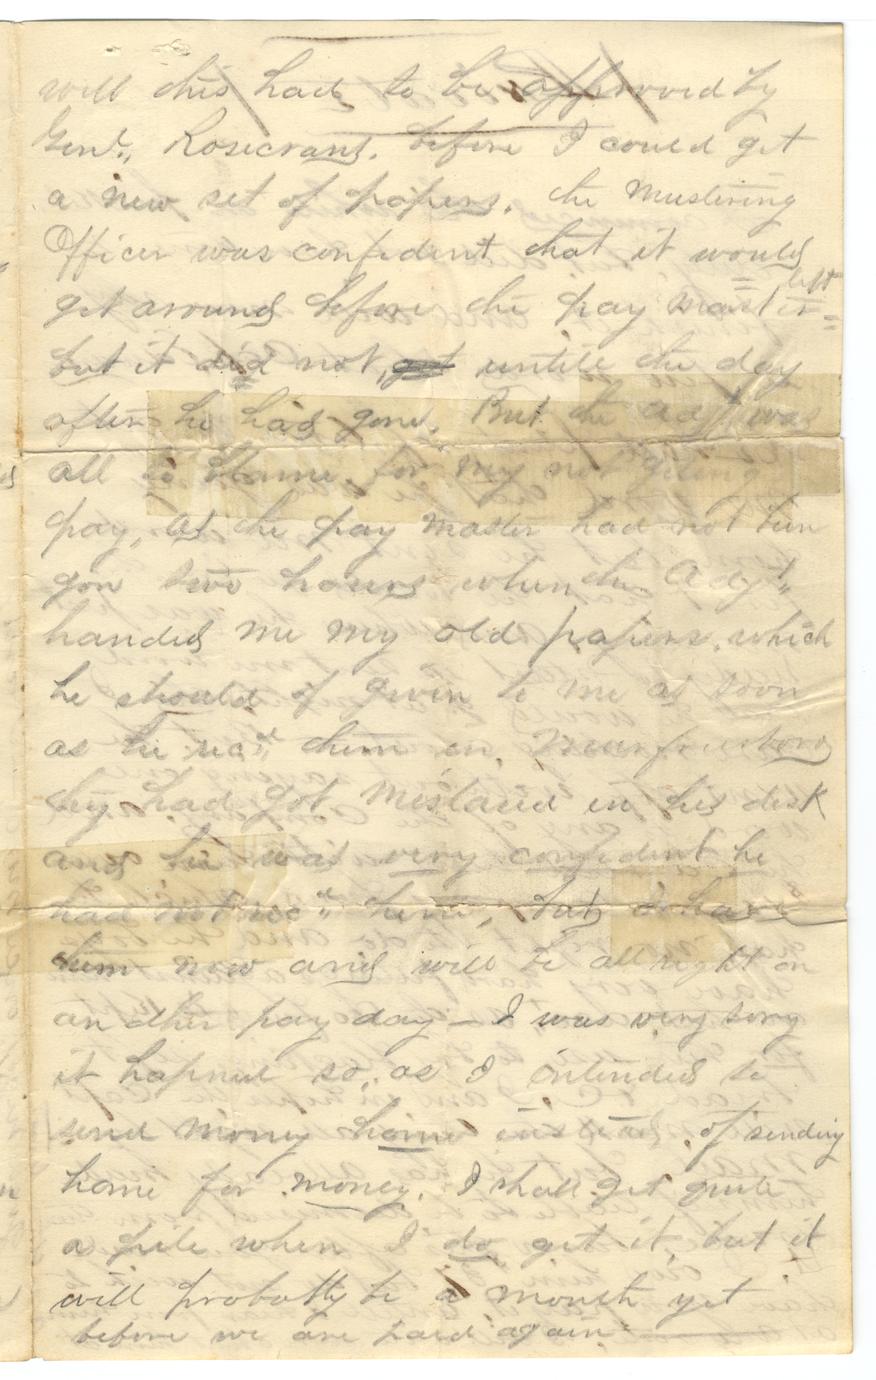 well this had to be approved by
Genl., Rosecrans. before I could get
a new set of papers. the Mustering
Officer was confident that it would
get around before the pay master left
but it did not, get untill the day
after he had gone. But the Adjt was
all to blame for my not geting
pay, as the pay master had not been
gon two hours when the Adjt.,
handed me my old papers, which
he should of given to me as soon
as he recd them in, Murfreesboro
they had got mislaid in his desk
and he was very confident he
had not recd them, but I have
them now and will be all right on
an other pay day — I was very sorry
it hapned so, as I intended to
send money home instead, of sending
home for money. I shall get quite
a pile when I do get it, but it
will probatly be a month yet
before we are paid again